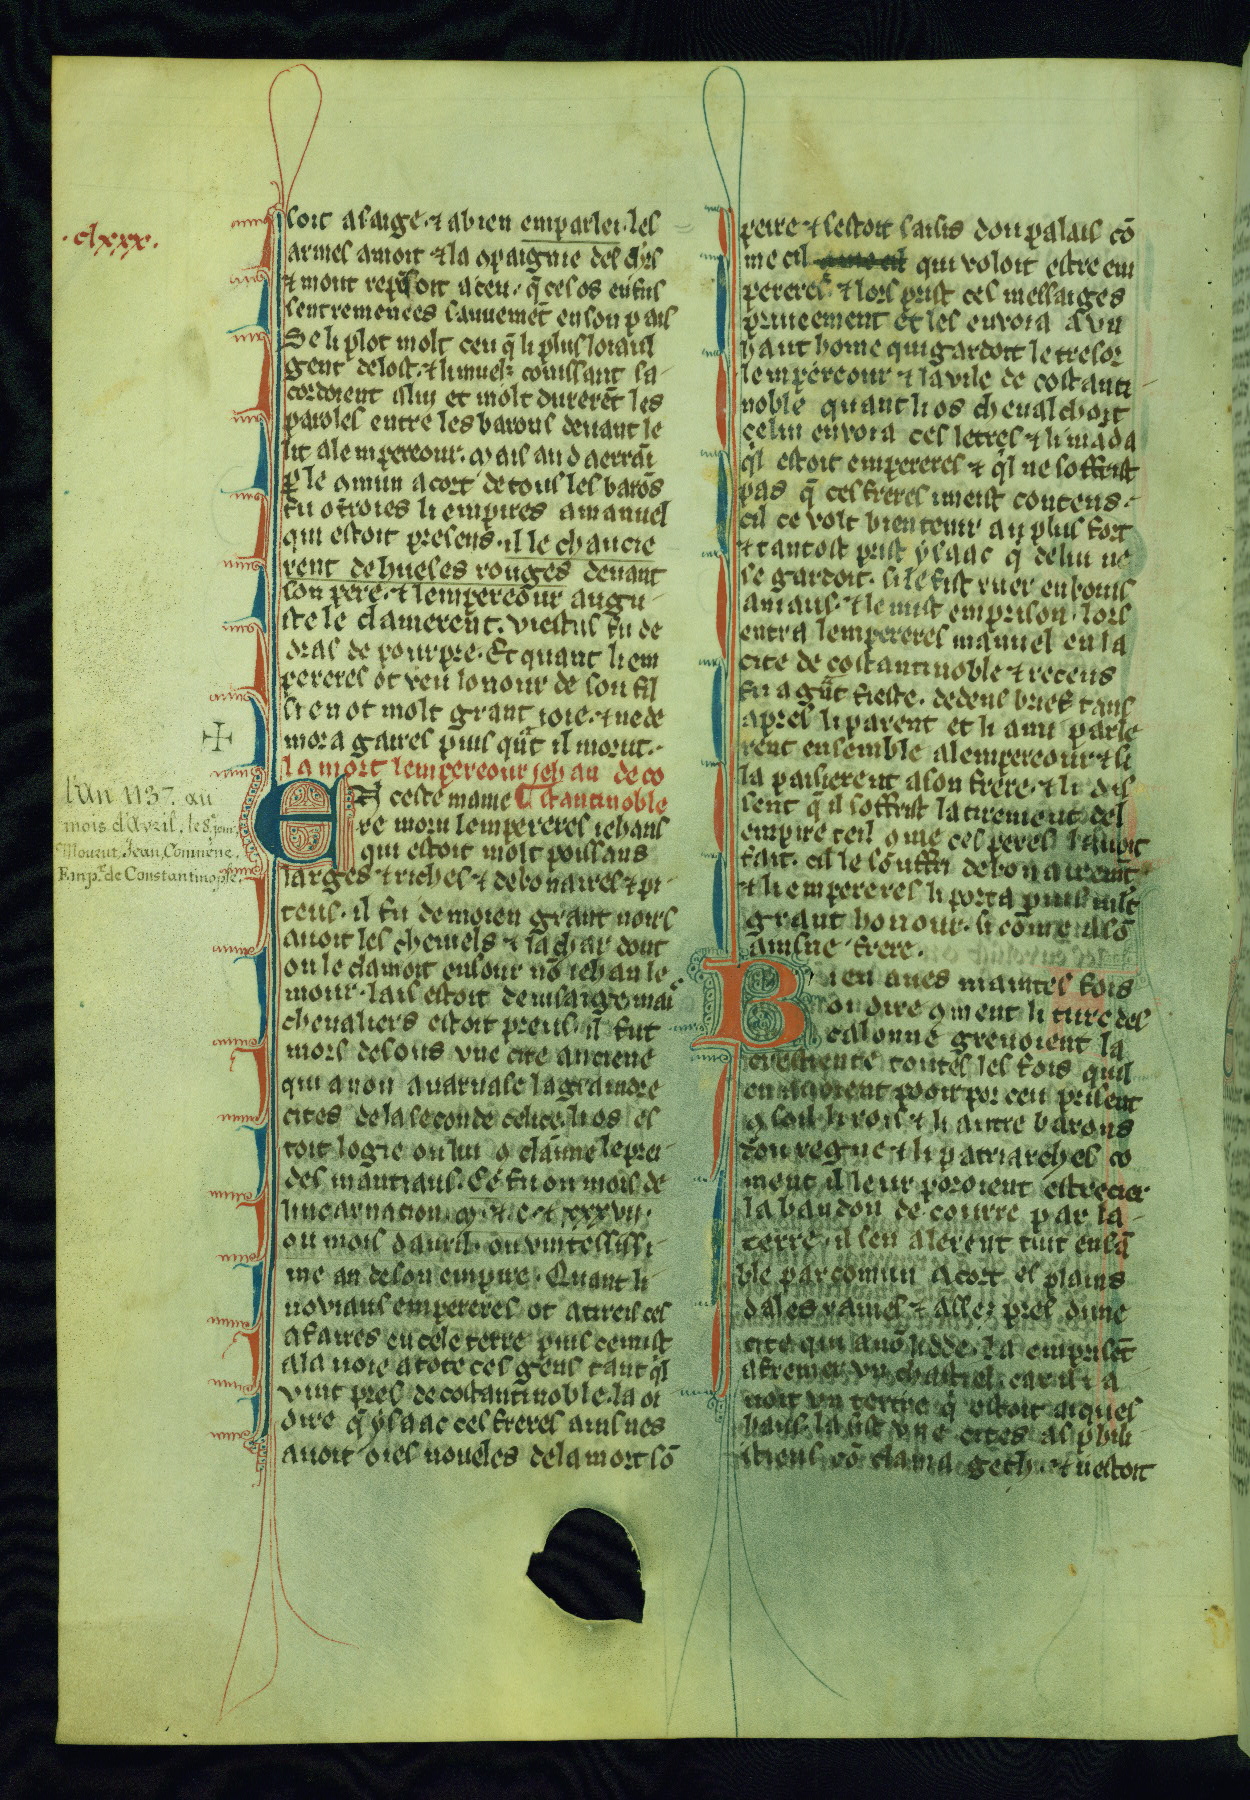 .clxxx.
soit asaige. ⁊ abien emparlei. les
armes amoit ⁊ la ꝯpaignie des chľrs
sentremenees sauuemēt en son pais
Se li plot molt ceu q̄ li plus loiaul
gent de lost. ⁊ li muelz conissant sa-
cordoient a lui et molt durerēt les
paroles entre les barons deuant le
lit alempereour. mais au daerrāi
ꝑ le ꝯmun acort de tous les barōs
fu otroies li empires amanuel
qui estoit presens. il le chaucie
rent de hueses rouges deuant
son pere. ⁊ lempereour augu-
ste le clamerent. viestus fu de
dras de pourpre. Et quant li em
pereres ot veu lonour de son fil
si en ot molt grant ioie. ⁊ ne de
mora gaires puis qūt il morut.
la mort lempereour jehan de co
stantinoble
En ceste maniere
re moru lempereres iehans
qui estoit molt poissans
larges ⁊ riches ⁊ debonaires ⁊ pi-
teus. il fu de moien grant noirs
auoit les cheuels ⁊ la char dont
on le clamoit en sour nō iehan le
mour. lais estoit de uisaige mais
cheualiers estoit preus. il fut
mors desous vne cite anciene
qui a non auaruase la grāmore
cites de la seconde celice. li os es
toit logie on lui ꝯ claime le prei
des mantiaus. Ce fu on mois de
lincarnation. m. ⁊ c. ⁊ xxxvii.
ou mois dauril. ou vintessissi-
me an de son empire. Quant li
noviaus empereres ot atireis ces
afaires en cele terre puis ce mist
a la uoie a tote ces gens tant q̓l
vint pres de costantinoble. la oi
dire q̄ ysaac ces freres ainsnes
auoit oies noueles de la mort sō
l'An 1137. au
mois d'Avril, le 8. jour,
Mourut Jean Comnène
Emp.r de Constantinople.
peire ⁊ sestoit saisis dou palais cō
me cil qui voloit estre em
pereres. ⁊ lors prist ces messaiges
priueement et les enuoia a vn
haut home qui gardoit le tresor
lempereour ⁊ la vile de costanti-
noble quant li os cheualchoit
celui enuoia ces letres ⁊ li māda
q̓l estoit empereres ⁊ q̓l ne soffrist
pas q̄ ces freres imeist contens.
cil ce volt bien tenir au plus fort
⁊ tantost prist ysaac q̄ de lui ne
se gardoit. si le fist ruer en bouis
aniaus. ⁊ le mist emprison. lors
entra lempereres manuel en la
cite de costantinoble ⁊ receus
fu a gūt fieste. dedens brief tans
apres li parent et li ami parle
rent ensemble alempereour ⁊ si
la paisierent a son frere. ⁊ li dis
sent q̄ il soffrist latirement del
empire teil ꝯme ces peres lauoit
fait. cil le souffri debonairemēt
⁊ li empereres li porta puis mlt̄
grant honour. si cōme a sō
ainsne frere.
Bien aues maintes fois
oi dire ꝯment li turc des
calonne greuoient la
crestiente toutes les fois quil
en auoient pooir por ceu prisent
ꝯsoil li rois ⁊ li autre barons
dou regne ⁊ li patriarches co
ment il leur poroient
la bandon de courre par la-
terre. il sen alerent tuit ensā
ble par comun acort es plains
dales rames ⁊ assez pres dune
cite qui a nō lidde. la emprisēt
a fremer vn chastiel. car il i a
uoit vn tertre q̄ estoit aiques
haus. la fist vne cites as phili
stiens cō clama geth. ⁊ nestoit